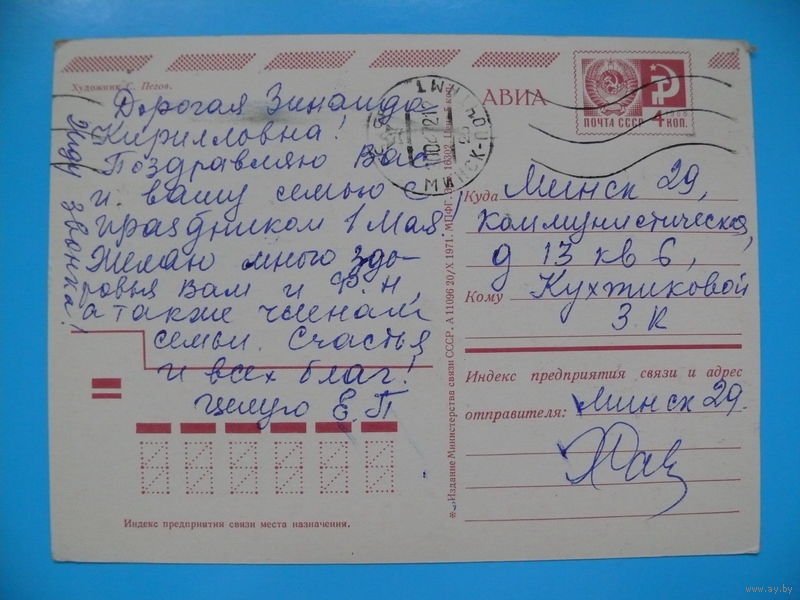 Художник С. Пегов.
Дорогая Зинаида
Кирилловна!
Поздравляю Вас
и вашу семью с
праздником 1 Мая.
Желаю много здо-
ровья вам и Ф. Н,
а также членам
семьи. Счастья
и всех благ!
Целую Е. П
Жду звонка!
АВИА
ПОЧТА СССР
4 КОП.
1966
МИНСК
Куда Минск 29,
Коммунистическая,
д 13 кв 6,
Кому Кухтиковой
З. К
Индекс предприятия связи и адрес
отправителя: Минск 29.
Издание Министерства связи СССР. А 11096 20/X 1971.
Индекс предприятия связи места назначения.
www.ay.by